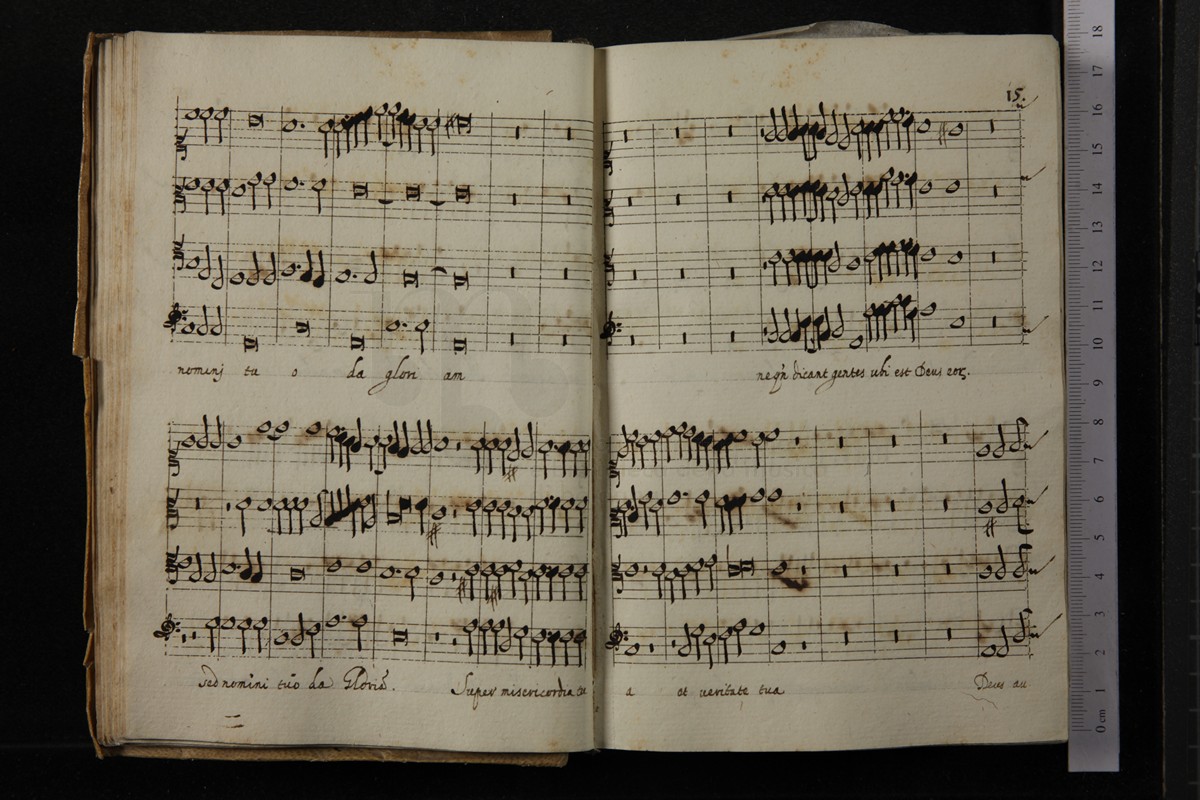 15.
nominj tu o da glori am
neqn dicant gentes ubi est Deus eor
sed nomini tuo da Gloria.
Super misericordia tu a et veritate tua
Deus au
18
17
16
15
14
13
12
11
10
9
8
7
6
5
4
3
2
1
0 cm